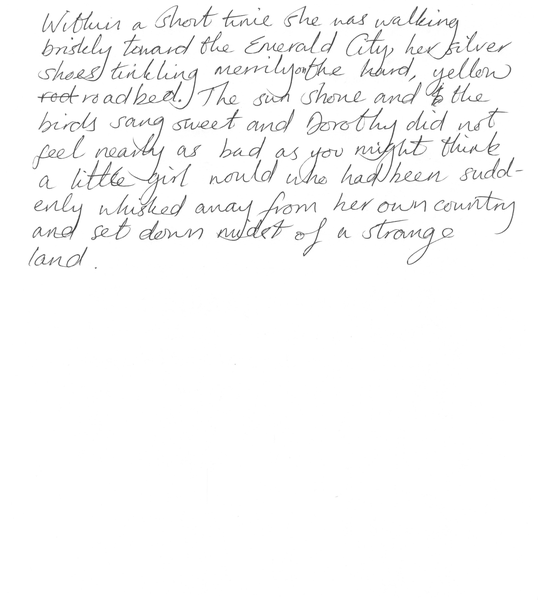 Within a short time she was walking
briskly toward the Emerald City, her silver
shoes tinkling merrily on the hard, yellow
root roadbed. The sun shone and b the
birds sang sweet and Dorothy did not
feel nearly as bad as you might think
a little girl would who had been sudd-
enly whisked away from her own country
and set down midst of a strange
land.